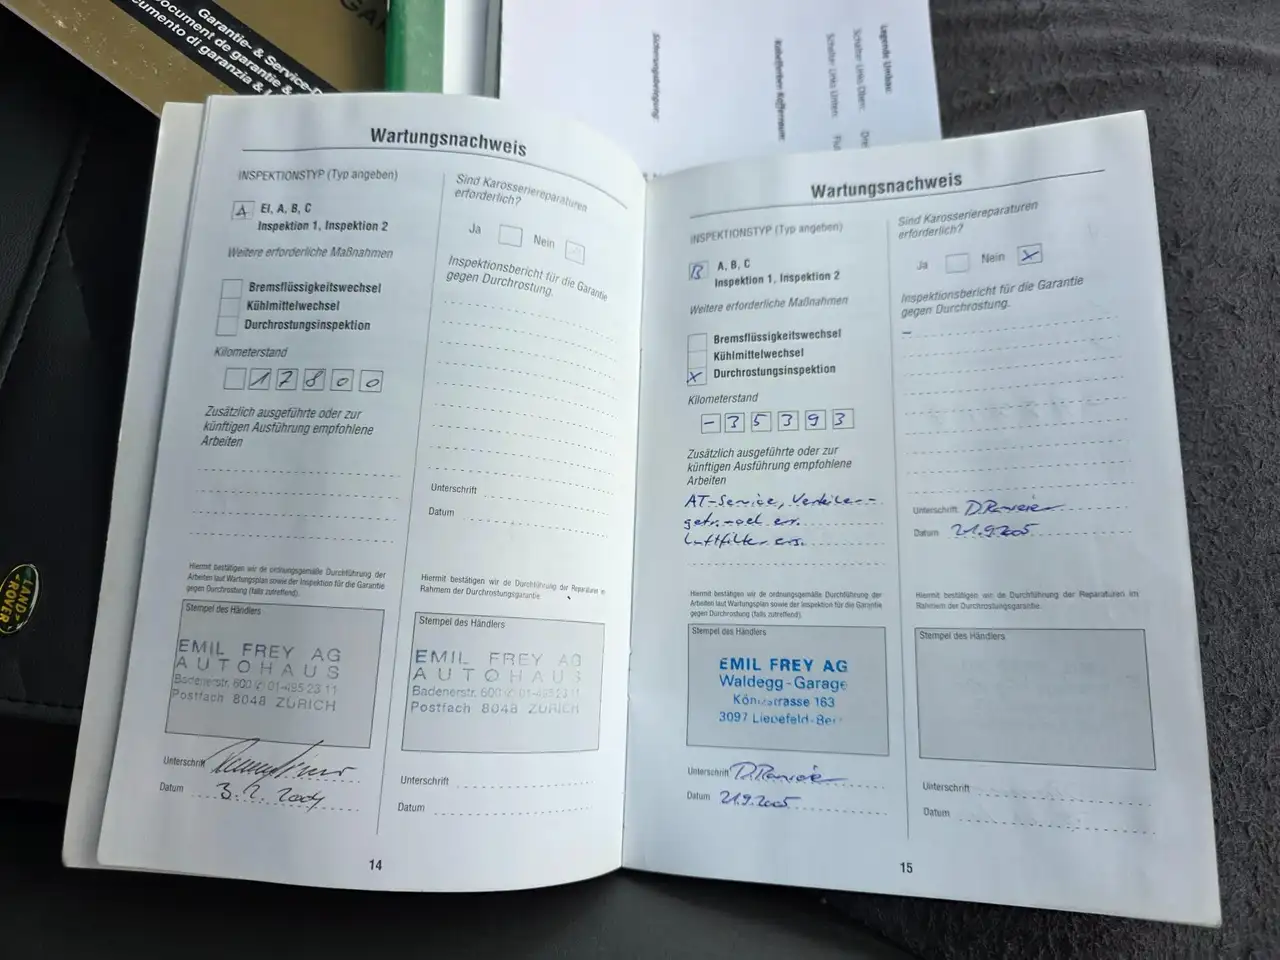 Garantie- & Service-D
ocument de garantie &
cumento di garanzia &
GA
Legende Umbau:
Schalter Links Oben:
Schalter Links Unten:
Sicherungsbelegung:
LAND
ROVER
Wartungsnachweis
INSPEKTIONSTYP (Typ angeben)
A EI, A, B, C
Inspektion 1, Inspektion 2
Weitere erforderliche Maßnahmen
Bremsflüssigkeitswechsel
Kühlmittelwechsel
Durchrostungsinspektion
Kilometerstand
17800
Zusätzlich ausgeführte oder zur
künftigen Ausführung empfohlene
Arbeiten
Hiermit bestätigen wir de ordnungsgemäße Durchführung der
Arbeiten laut Wartungsplan sowie der Inspektion für die Garantie
gegen Durchrostung (falls zutreffend).
Stempel des Händlers
EMIL FREY AG
AUTOHAUS
Badenerstr. 600 01-495 23 11
Postfach 8048 ZÜRICH
Unterschrift
Datum 3.2.2004
Sind Karosseriereparaturen
erforderlich?
Ja Nein
Inspektionsbericht für die Garantie
gegen Durchrostung.
Unterschrift
Datum
Hiermit bestätigen wir de Durchführung der Reparaturen im
Rahmen der Durchrostungsgarantie.
Stempel des Händlers
EMIL FREY AG
AUTOHAUS
Badenerstr. 600 01-495 23 11
Postfach 8048 ZÜRICH
Unterschrift
Datum
14
Wartungsnachweis
INSPEKTIONSTYP (Typ angeben)
B A, B, C
Inspektion 1, Inspektion 2
Weitere erforderliche Maßnahmen
Bremsflüssigkeitswechsel
Kühlmittelwechsel
X Durchrostungsinspektion
Kilometerstand
-35393
Zusätzlich ausgeführte oder zur
künftigen Ausführung empfohlene
Arbeiten
AT-Service, Verteiler-
getr.-oel ers.
Luftfilter ers.
Hiermit bestätigen wir de ordnungsgemäße Durchführung der
Arbeiten laut Wartungsplan sowie der Inspektion für die Garantie
gegen Durchrostung (falls zutreffend).
Stempel des Händlers
EMIL FREY AG
Waldegg-Garage
Könizstrasse 163
3097 Liebefeld-Bern
Unterschrift
Datum 21.9.2005
Sind Karosseriereparaturen
erforderlich?
Ja Nein X
Inspektionsbericht für die Garantie
gegen Durchrostung.
–
Unterschrift
Datum 21.9.2005
Hiermit bestätigen wir de Durchführung der Reparaturen im
Rahmen der Durchrostungsgarantie.
Stempel des Händlers
Unterschrift
Datum
15